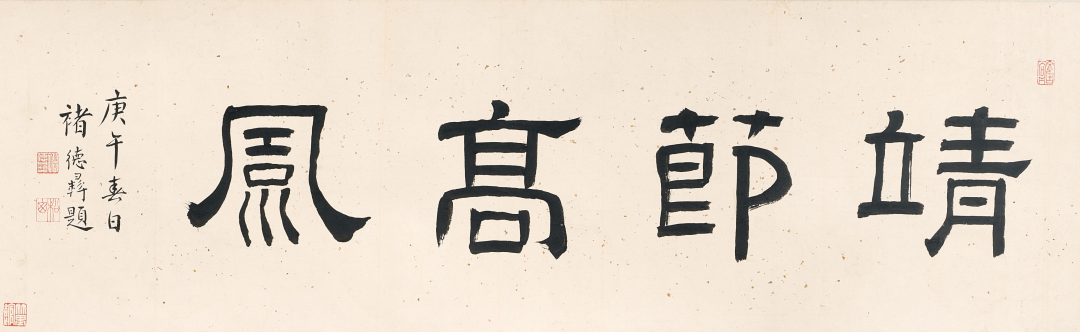 靖節高風
庚午春日
褚德彝題